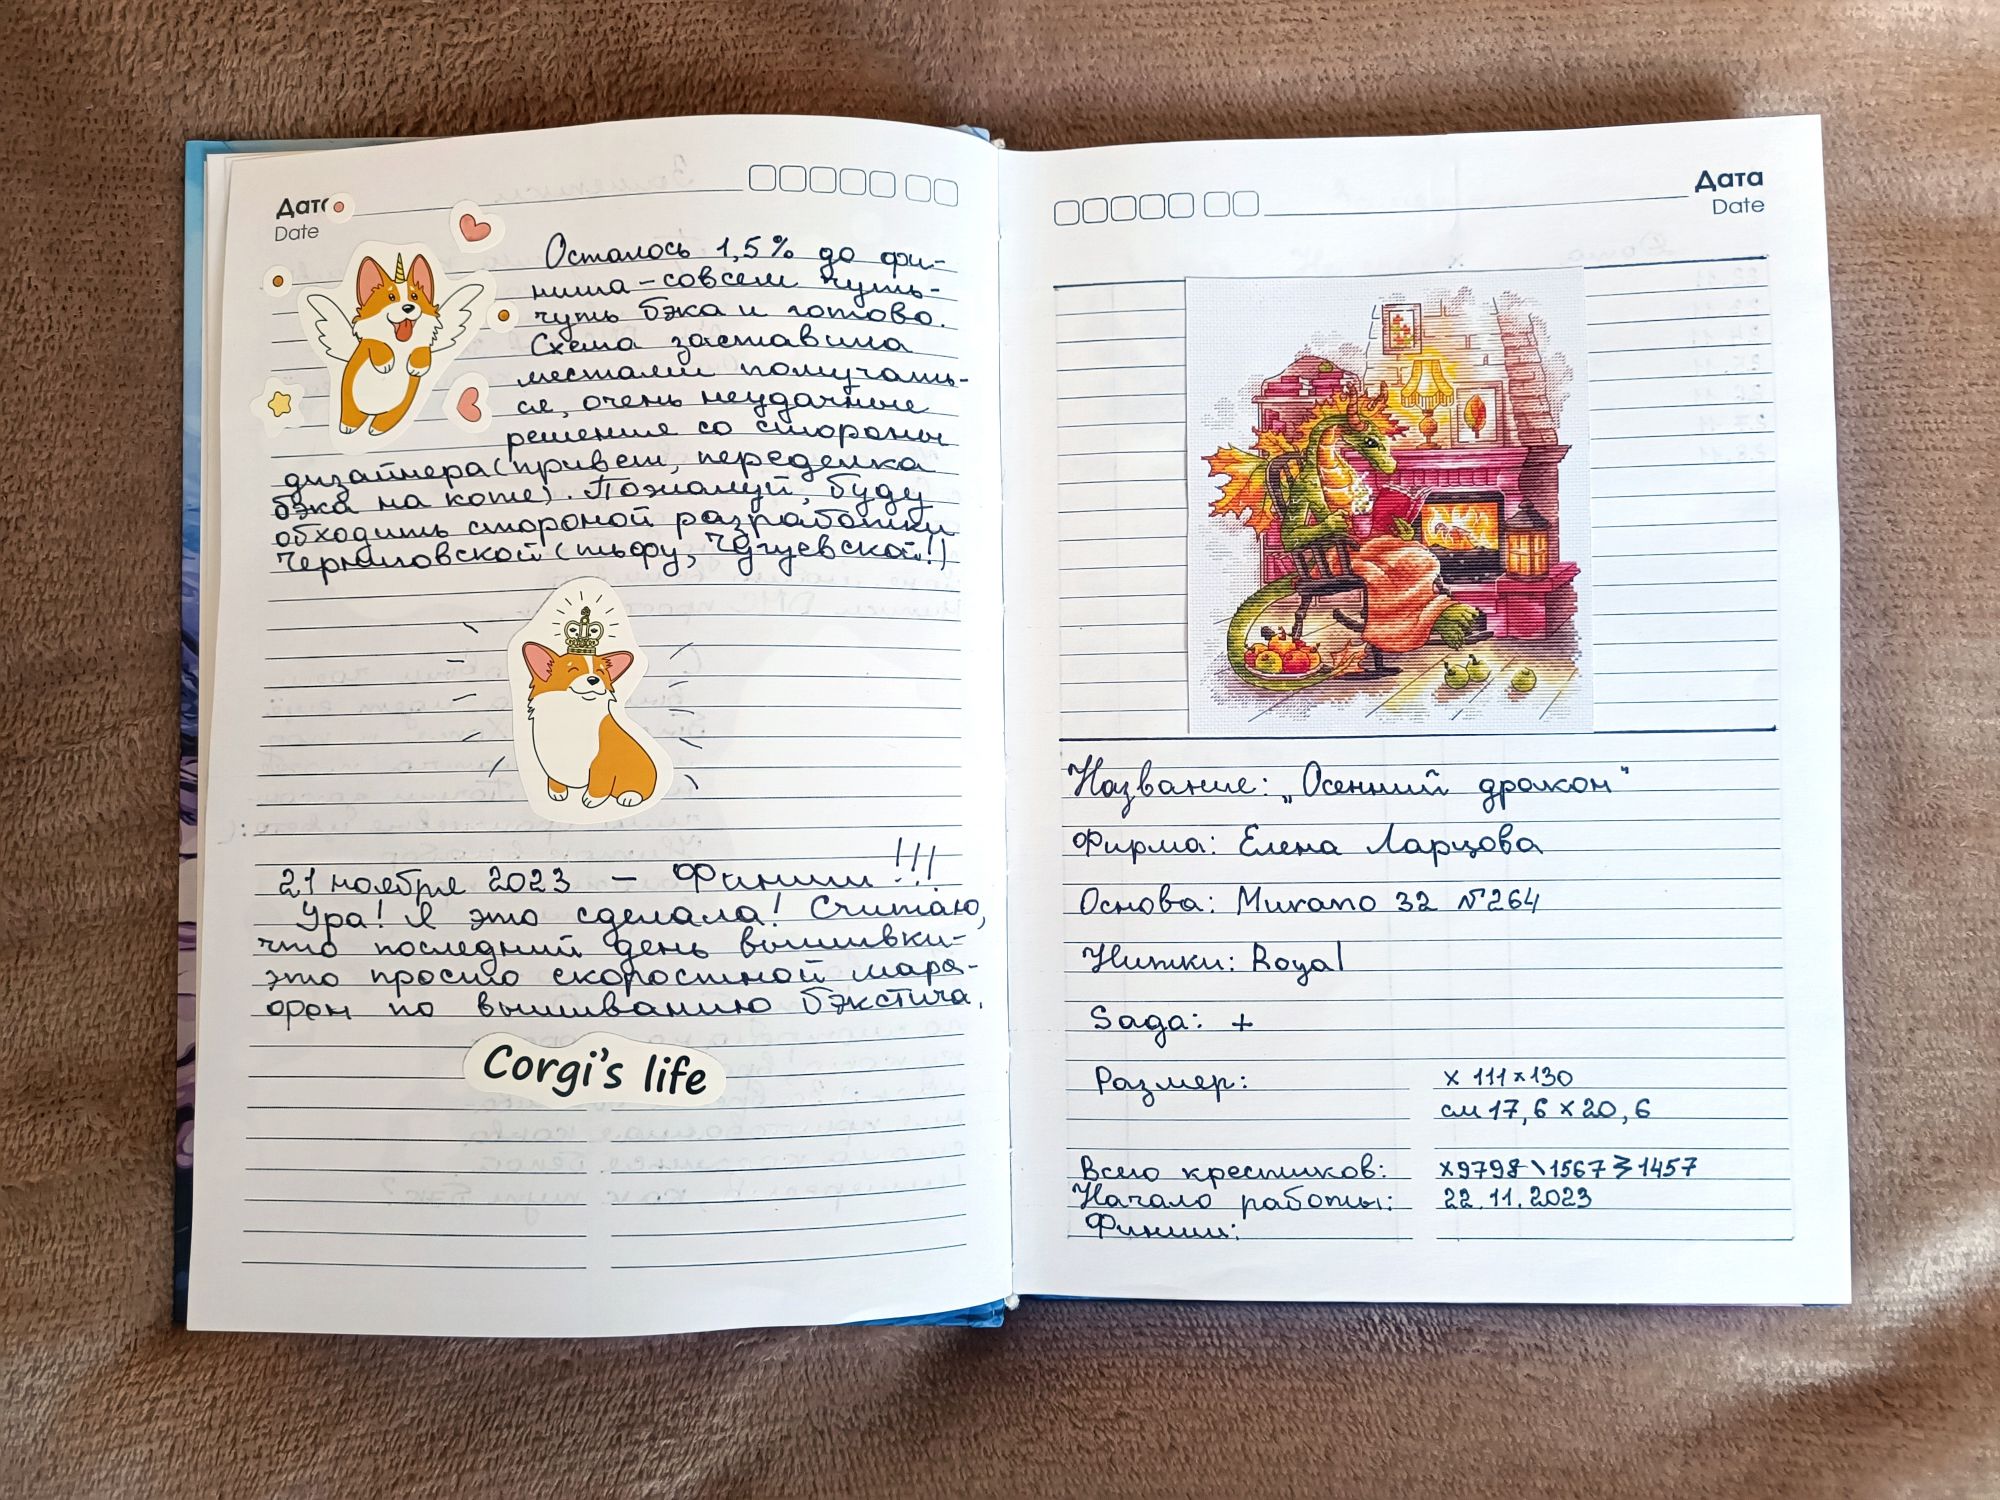 Дата
Date
Осталось 1,5% до фи-
ниша – совсем чуть-
чуть бэка и готово.
Схема заставила
местами помучать-
ся, очень неудачные
решения со стороны
дизайнера (привет, переделка
бэка на коте). Пожалуй, буду
обходить стороной разработки
Черниговской (тьфу, Чугуевской!)
21 ноября 2023 – Финиш!!!
Ура! Я это сделала! Считаю,
что последний день вышивки –
это просто скоростной мара-
фон по вышиванию бэкстича.
Corgi's life
Дата
Date
Название: „Осенний дракон"
Фирма: Елена Ларцова
Основа: Murano 32 №264
Нитки: Royal
Saga: +
Размер: х 111×130
см 17,6 × 20,6
Всего крестиков: х9798 \ 1567 1457
Начало работы: 22.11.2023
Финиш: